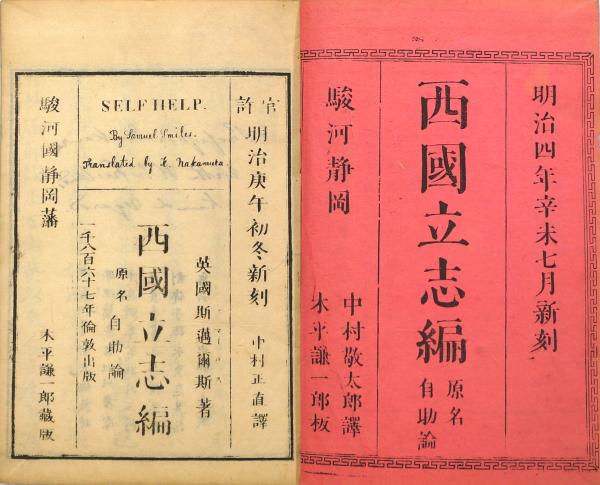 明治四年辛未七月新刻
西國立志編
原名
自助論
中村敬太郎譯
駿河静岡
木平謙一郎板
官許
明治庚午初冬新刻
中村正直譯
英國斯邁爾斯著
SELF HELP.
By Samuel Smiles.
Translated by K. Nakamura.
西國立志編
原名
自助論
一千八百六十七年倫敦出版
駿河國靜岡藩
木平謙一郎藏版